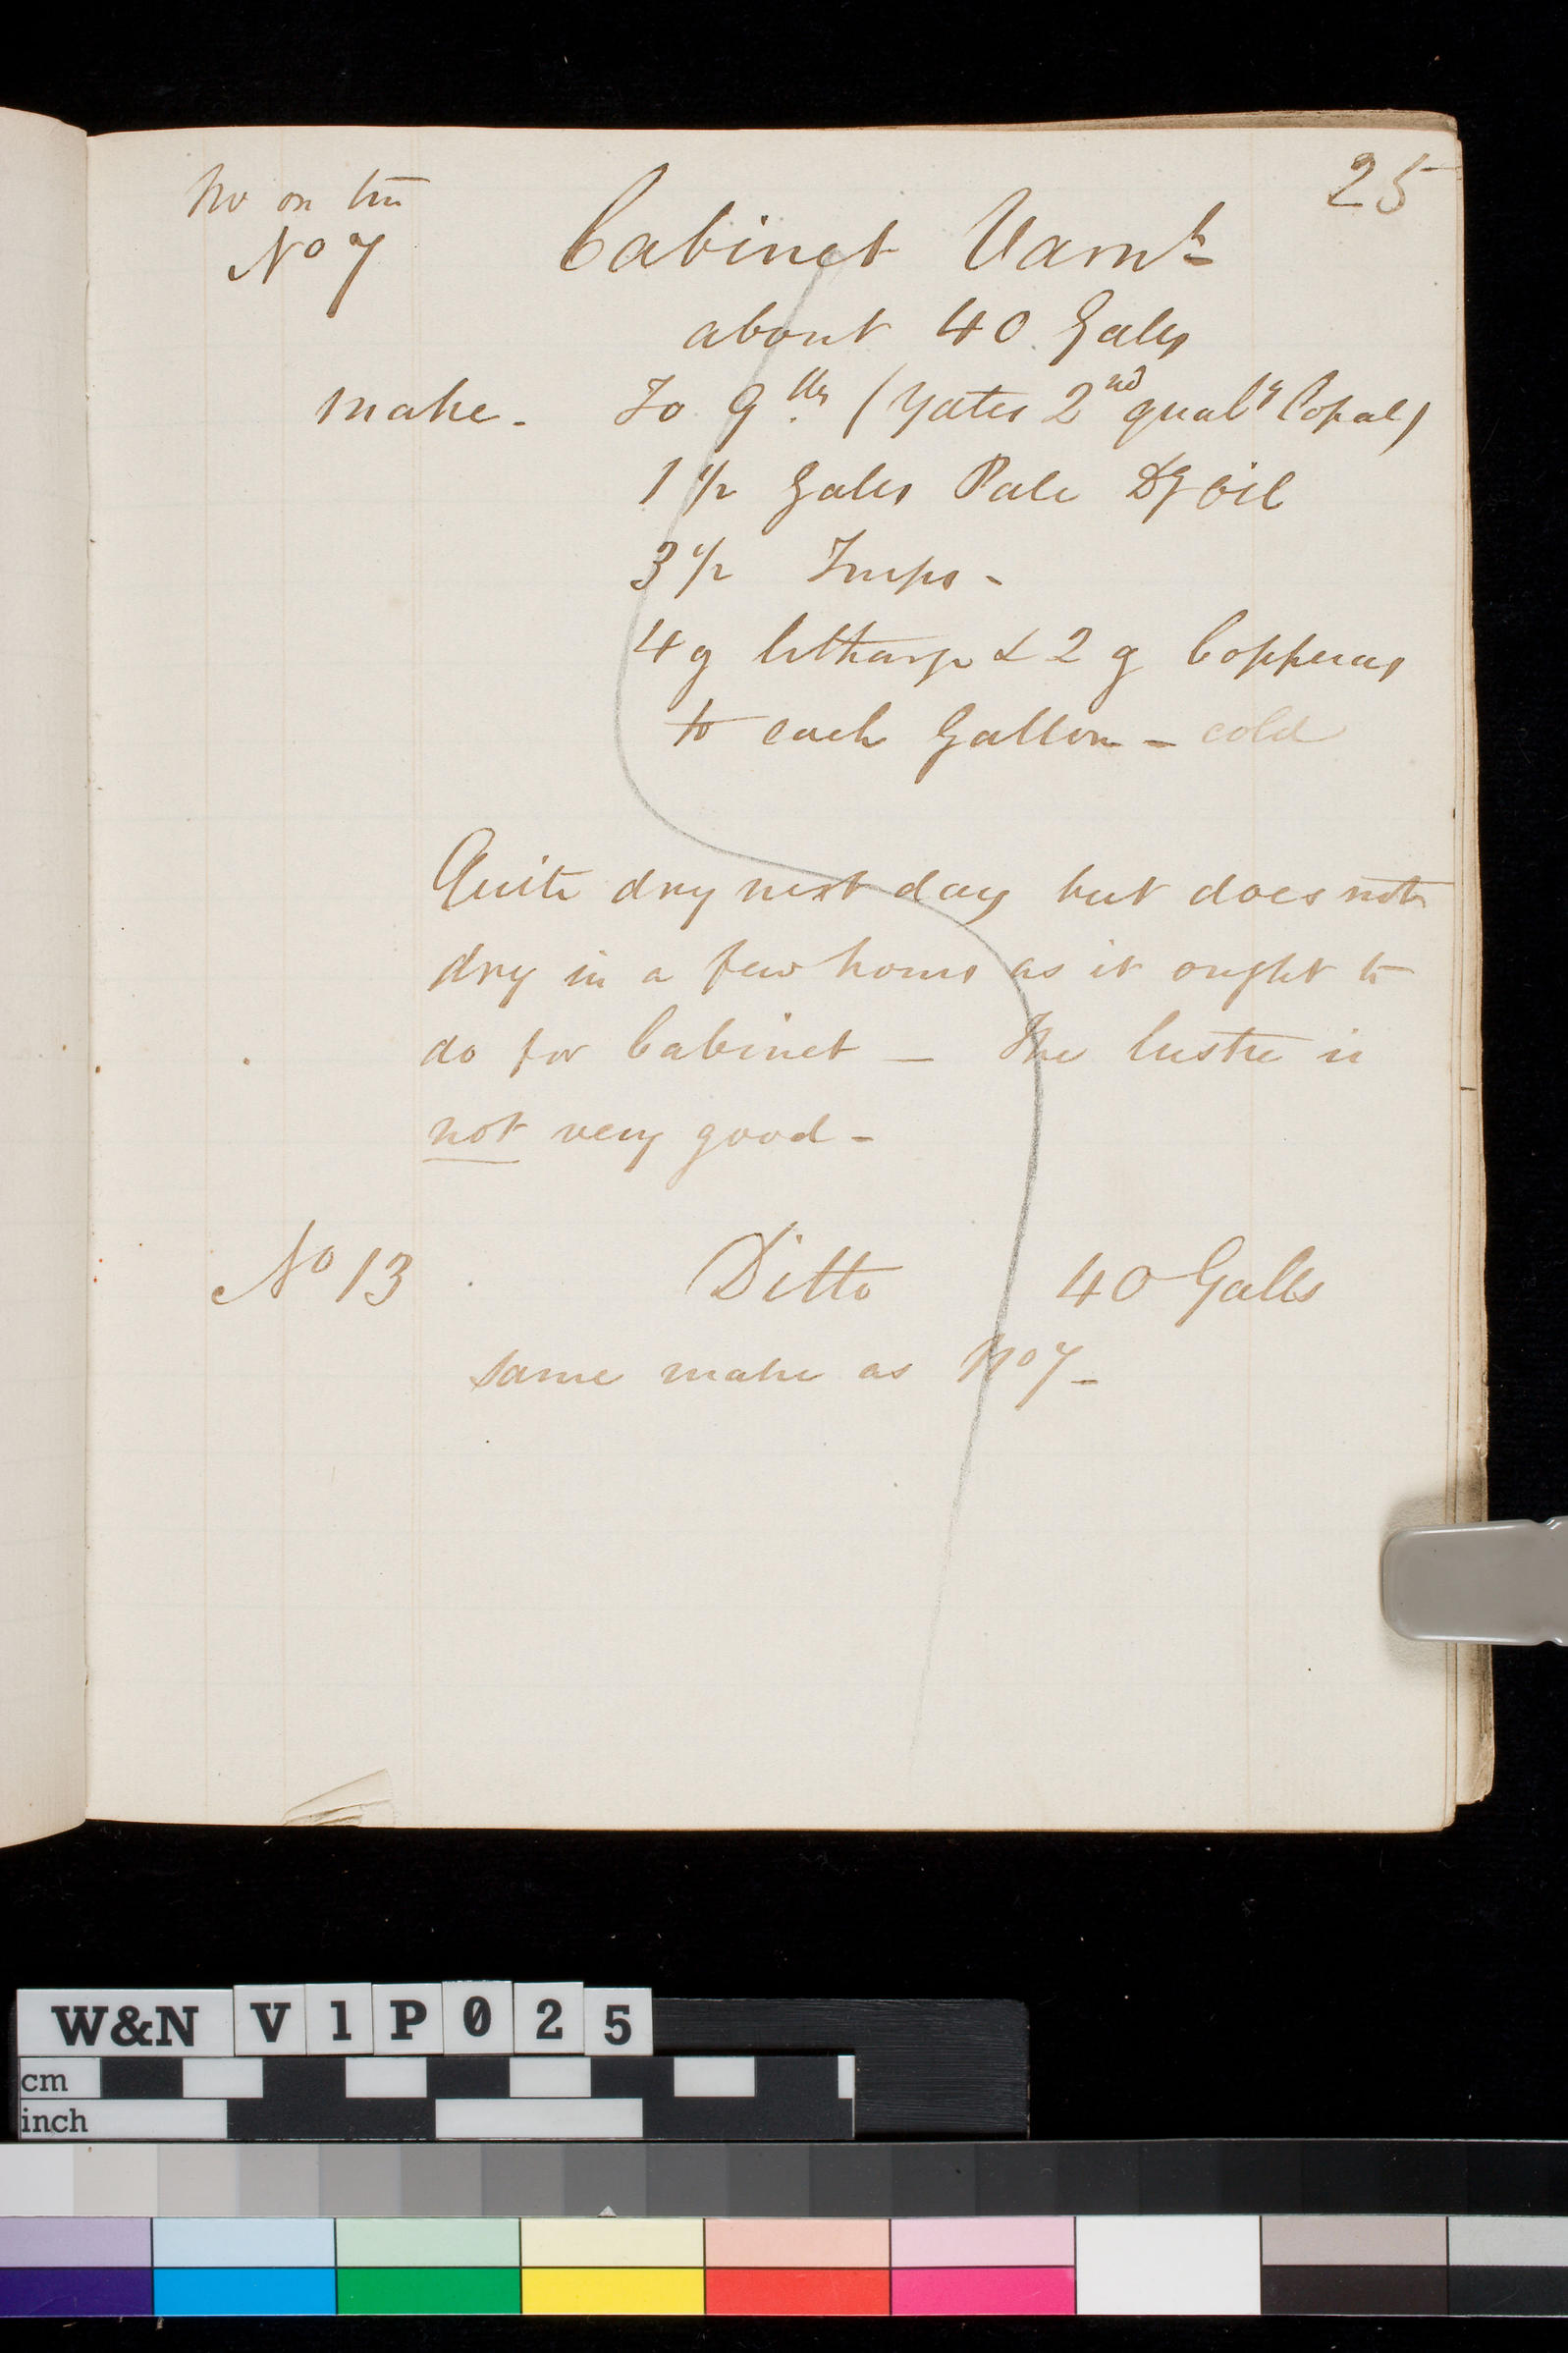 25
No on tin
No 7 Cabinet Varnh
about 40 Galls
make - To 9 lbs (Yates 2nd qualy Copal)
1 1/2 Galls Pale Dg Oil
3 1/2 Turps -
4 g litharge & 2 g Copperas
to each Gallon - cold
Quite dry next day but does not
dry in a few hours as it ought to
do for Cabinet - The lustre is
not very good -
No 13 Ditto 40 Galls
same make as No 7 -
W&N V1P025
cm
inch